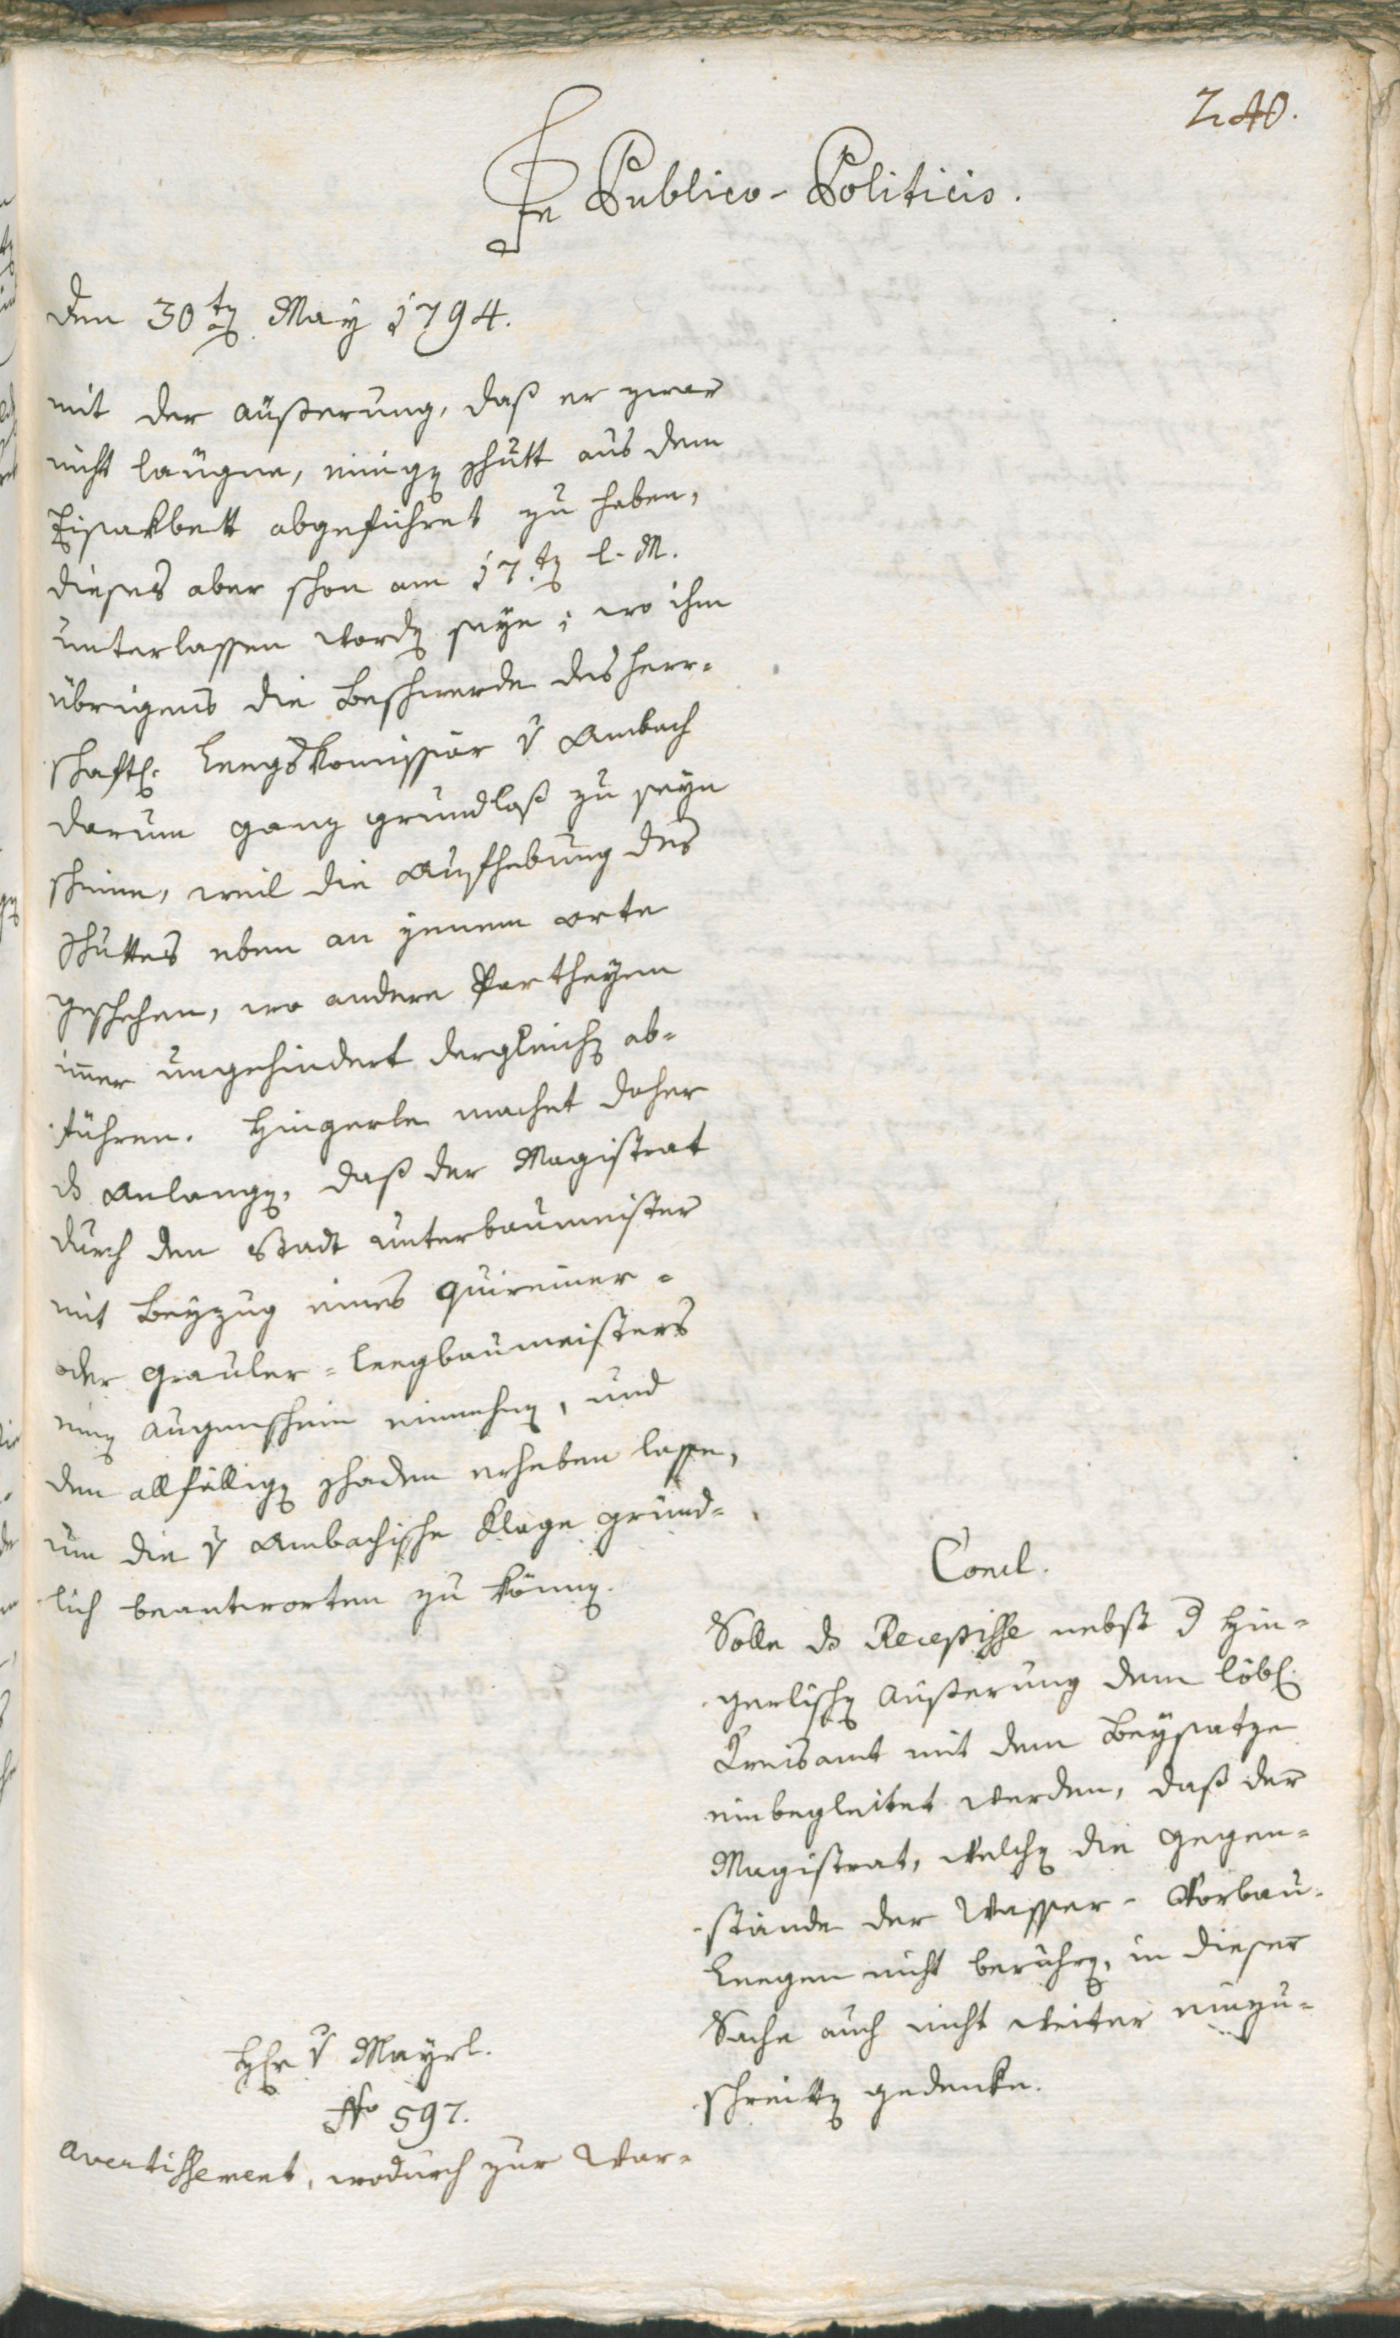 240.
In Publico-Politicis.
den 30ten May 1794.
mit der Äußerung, daß er zwar
nicht laügne, einigen Schutt aus dem
Eisakbett abgeführet zu haben,
dieses aber schon am 17ten l. M.
unterlassen worden seye; wo ihm
übrigens die Beschwerde des herr-
schaftl. Leegs Komissär v Ambach
darum ganz grundloß zu seyn
scheine, weil die Aufhebung des
Schuttes eben an jenem Orte
geschehen, wo andere Partheyen
imer ungehindert dergleichen ab-
führen. Hingerle machet daher
ds Anlangen, daß der Magistrat
durch den Stadt Unterbaumeister
mit Beyzug eines Quireiner-
oder Grauler-Leegbaumeisters
einen Augenschein einnehmen, und
den allfälligen Schaden erheben lasse,
um die v Ambachische Klage gründ-
lich beantworten zu können.
Concl.
Solle ds Recepisse nebst d Hin-
gerlischen Äußerung dem löbl.
Kreisamt mit dem Beysatze
einbegleitet werden, daß der
Magistrat, welchen die Gegen-
stände der Wasser-Vorbau-
Leegen nicht berühren, in dieser
Sache auch nicht weiter einzu-
schreitten gedenke.
Hr v Mayrl.
No 597.
Avertissement, wodurch zur War-